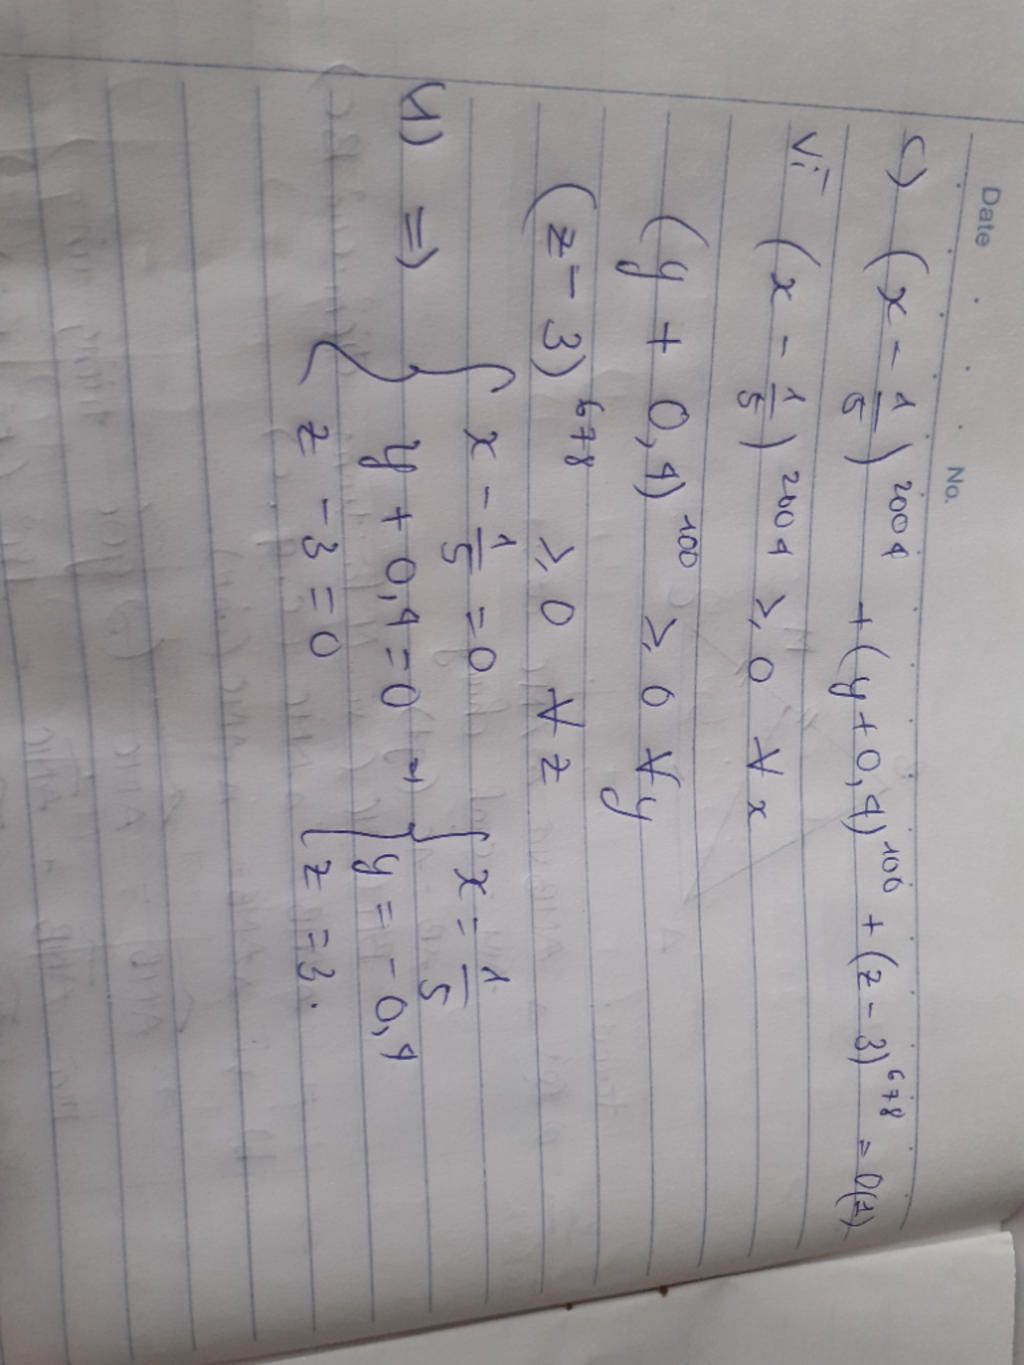 Date No.
c) (x - 1/5)^2004 + (y + 0,4)^100 + (z - 3)^678 = 0 (1)
Vì (x - 1/5)^2004 ≥ 0 ∀ x
(y + 0,4)^100 ≥ 0 ∀ y
(z - 3)^678 ≥ 0 ∀ z
(1) => { x - 1/5 = 0
y + 0,4 = 0 → { x = 1/5
z - 3 = 0 y = -0,4
z = 3.